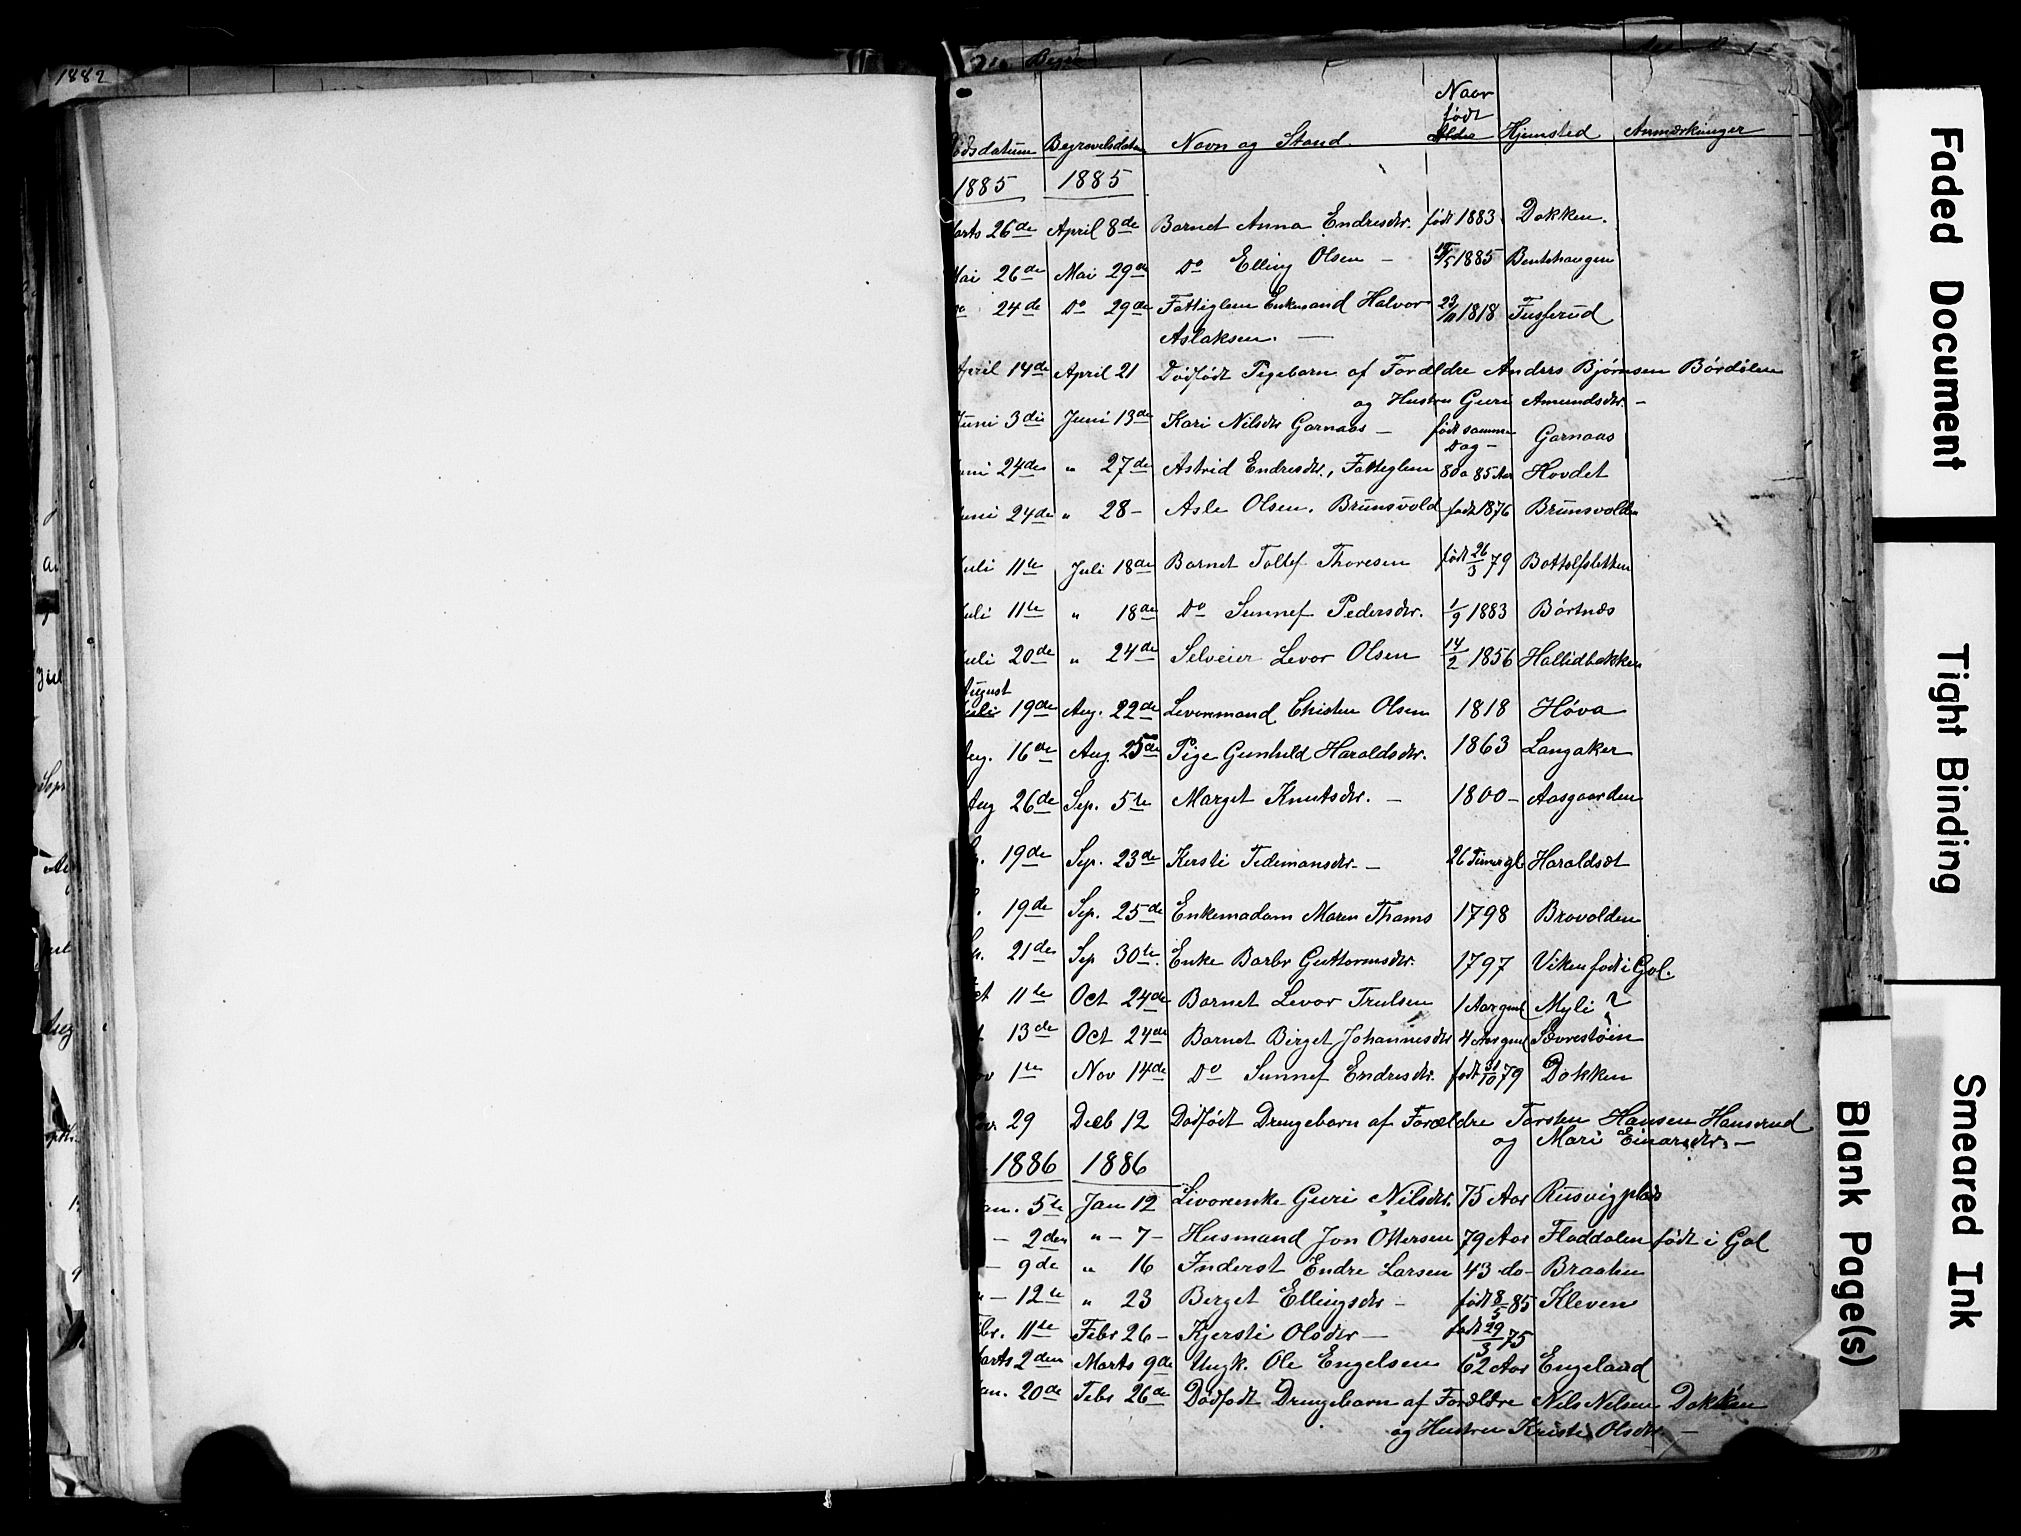 1882
Naar
født
Dødsdatum Begravelsdatum Navn og Stand. Alder Hjemsted Anmærkninger
1885 1885
Marts 26de April 8de Barnet Anna Endresdtr. født 1883 Dokken.
Mai 26de Mai 29de Do Elling Olsen – 1885 Bentehaugen
Do 24de Do 29de Fattiglem Enkemand Halvor 23/11 1818
Aslaksen. —
April 14de April 21 Dødfødt Pigebarn af Forældre Anders Bjørnsen Børdølen
og Hustru Guri Amundsdtr. –
Juni 3die Juni 13de Kari Nilsdtr Garnaas – født samme Dag – Garnaas
Juni 24de " 27de Astrid Endresdtr., Fattiglem 80 a 85 Aar Hovdet
Juni 24de " 28 – Asle Olsen. Brunsvold født 1876 Brunsvolden
Juli 11te Juli 18de Barnet Tollef Thoresen født 26/3 79 Bottolfsletten
Juli 11te " 18de Do Sunnef Pedersdtr. 1/9 1883 Børtnæs
Juli 20de " 24de Selveier Levor Olsen 14/2 1856 Hallidbakken
August
Juli 19de Aug. 22de Levormand Christen Olsen 1818 Høva
Aug. 16de Aug. 25de Pige Gunhild Haraldsdtr. 1863 Langaker
Aug 26de Sep. 5te Marget Knutsdtr. – 1800 – Aasgaarden
Sep. 19de Sep. 23de Kersti Tedemansdtr. – 26 Timer gl Haraldsæt
S. 19de Sep. 25de Enkemadam Maren Thams 1798 Brovolden
Sep. 21de Sep 30te Enke Barbr Guttormsdtr. 1797 Viken født i Gol.
Oct 11te Oct 24de Barnet Levor Trulsen 1 Aar gml Myli ?
Oct. 13de Oct 24de Barnet Birget Johannesdtr 4 Aar gml Sævrestøin
Nov 1te Nov 14de Do Sunnef Endresdtr. født 31/10 79 Dokken
Nov. 29 Decb 12 Dødfødt Drengebarn af Forældre Torsten Hansen Hansrud
og Mari Einarsdtr. –
1886 1886
Jan. 5te Jan 12 Livørenke Guri Nilsdtr. 75 Aar Rusvigplads
" – 2den " – 7 – Husmand Jon Ottersen 79 Aar Fladdalen født i Gol
" – 9de " 16 Inderst Endre Larsen 43 do – Braaten
" – 12te " 23 Berget Ellingsdtr – født 8/5 85 Kleven
Febr. 11te Febr 26 – Kjersti Olsdtr – født 29/3 75
Marts 2den Marts 9de Ungk. Ole Engelsen 62 Aar Engeland
Jan. 20de Febr 26de Dødfødt Drengebarn af Forældre Nils Nilsen Dokken
og Hustru Kristi Olsdtr. –
Faded Document
Tight Binding
Smeared Ink
Blank Page(s)